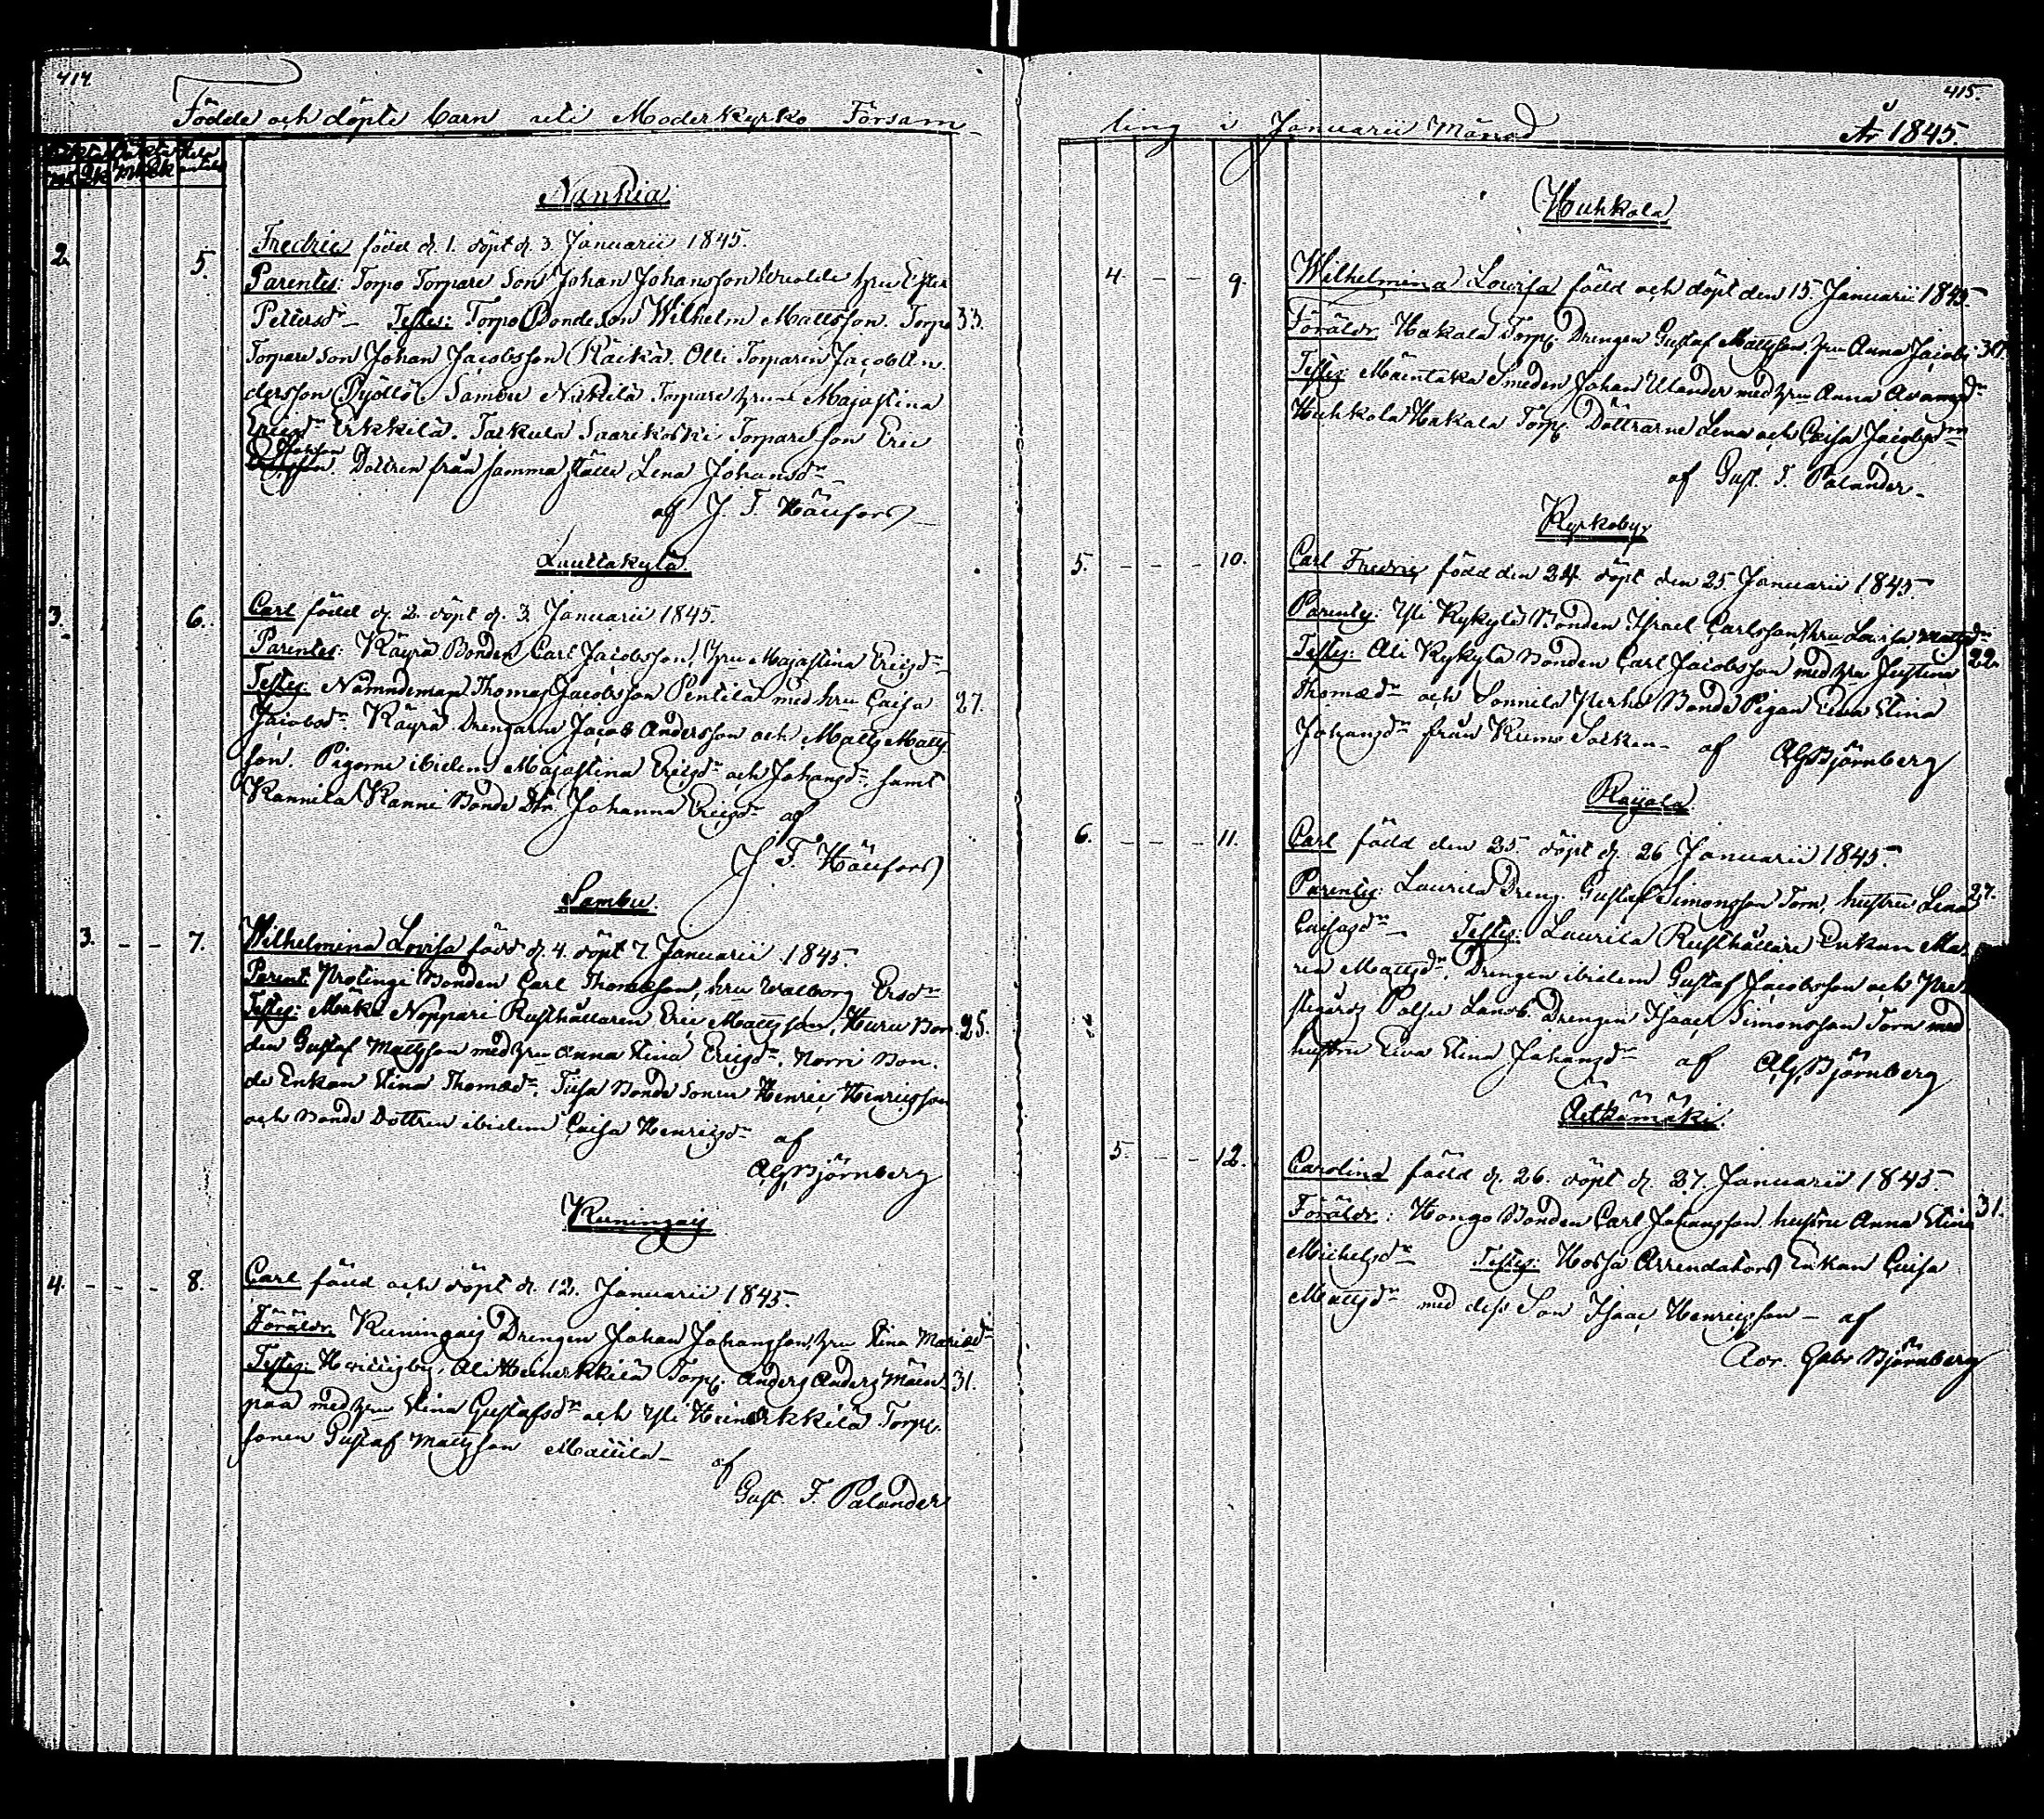 414
Födde och döpte barn uti Moderkyrko Försam-
Nankia
2. 5. Fredric född d. 1. döpt d. 3 Januarii 1845.
Parentes: Torpo Torpare Son Johan Johansson hru Ester
Pettersdr Testes: Torpo Bonde Son Wilhelm Mattsson. Torpo 33.
Torpare Son Johan Jacobsson Räikä. Olli Torparen Jacob An-
dersson Pyöllö. Sambu Nickilä Torpare hru Majastina
Ericsdr Erkkilä. Taskula Saarikoski Torpare son Eric
Dottren från samma ställe Lena Johansdr
af J. F. Häufors
Lauttakylä
3. 6. Carl född d. 2. döpt d. 3 Januarii 1845.
Parentes: Käyrä Bonden Carl Jacobsson, hru Majastina Ericsdr
Testes: Nämndeman Thomas Jacobsson Pentilä med hru Caisa 27.
Jacobsdr Käyrä Drengarne Jacob Andersson och Matts Matts
son. Pigorne ibidem Majastina Ericsdr och Johansdr samt
Kannila Kanni Bonde Dtr Johanna Ericsdr af
J. F. Häufors
Sambu.
3. - - 7. Wilhelmina Lovisa född d. 4. döpt 7 Januarii 1845.
Parent Protingi Bonden Carl Thomasson, hru Walborg Ersdr
Testes: Noppari Rusthållaren Eric Mattsson, Huru Bon- 25.
den Gustaf Mattsson med hru Anna Stina Ericsdr, Norri Bon-
de Enkan Stina Thomasdr, Tuisa Bonde Sonen Henric Henricsson
och Bonde Dottren ibidem Caisa Henricsdr af
A G Björnberg
Kuningais
4. - - - 8. Carl född och döpt d. 12. Januarii 1845.
Föräldr. Kuningais Drengen Johan Johansson, hru Stina Mariædr
Testes: Hvittisby, Ali Heinerkkilä Torp. Anders Anders Mäen- 31.
pää med hru Stina Gustafsdr och Yli Heinerkkilä Torp.
sonen Gustaf Mattsson Mattila- af
Gust. F. Palander
415.
ling i Januarii Månad År 1845.
Huhkola
4. - - 9. Wilhelmina Lovisa född och döpt den 15. Januarii 1845.
Föräldr. Hakala Torp. Drengen Gustaf Mattsson, hru Anna Jacobs 30.
Testes: Mäentaka Smeden Johan Ulander med hru Anna Adamsdr
Huhkola Hakala Torp. Döttrarne Lena och Caisa Jacobsdr
af Gust. F. Palander-
Kyrkoby
5. - - - 10. Carl Fredric född den 24. döpt den 25 Januarii 1845
Parentes: Yli Kykylä Bonden Israel Carlsson, hru Lovisa Mattsdr
Testes: Ali Kykylä Bonden Carl Jacobsson med hru Justina 22.
Thomædr och Sonnila Perho Bonde Pigan Eva Stina
Johansdr från Kumo Socken- af A G Björnberg
Raijala
6. - - - 11. Carl född den 25. döpt d. 26 Januarii 1845.
Parentes: Laurila Dreng. Gustaf Simonsson Torn, hustru Lena 27.
Caisasdr- Testes: Laurila Rusthållare Enkan Ma-
ria Mattsdr, Drengen ibidem Gustaf Jacobsson och Pre-
stgårds Palsu Landb. Drengen Isaac Simonsson Torn med
hustru Eva Stina Johansdr af A G Björnberg
Äetsämäki.
5. - - 12. Carolina född d. 26. döpt d. 27. Januarii 1845
Föräldr: Hongo Bonden Carl Johansson hustru Anna Stina 31.
Michelsdr Testes: Hossa Arrendators Enkan Caisa
Mattsdr med dess Son Isaac Henricsson - af
Adr. Gabr Björnberg